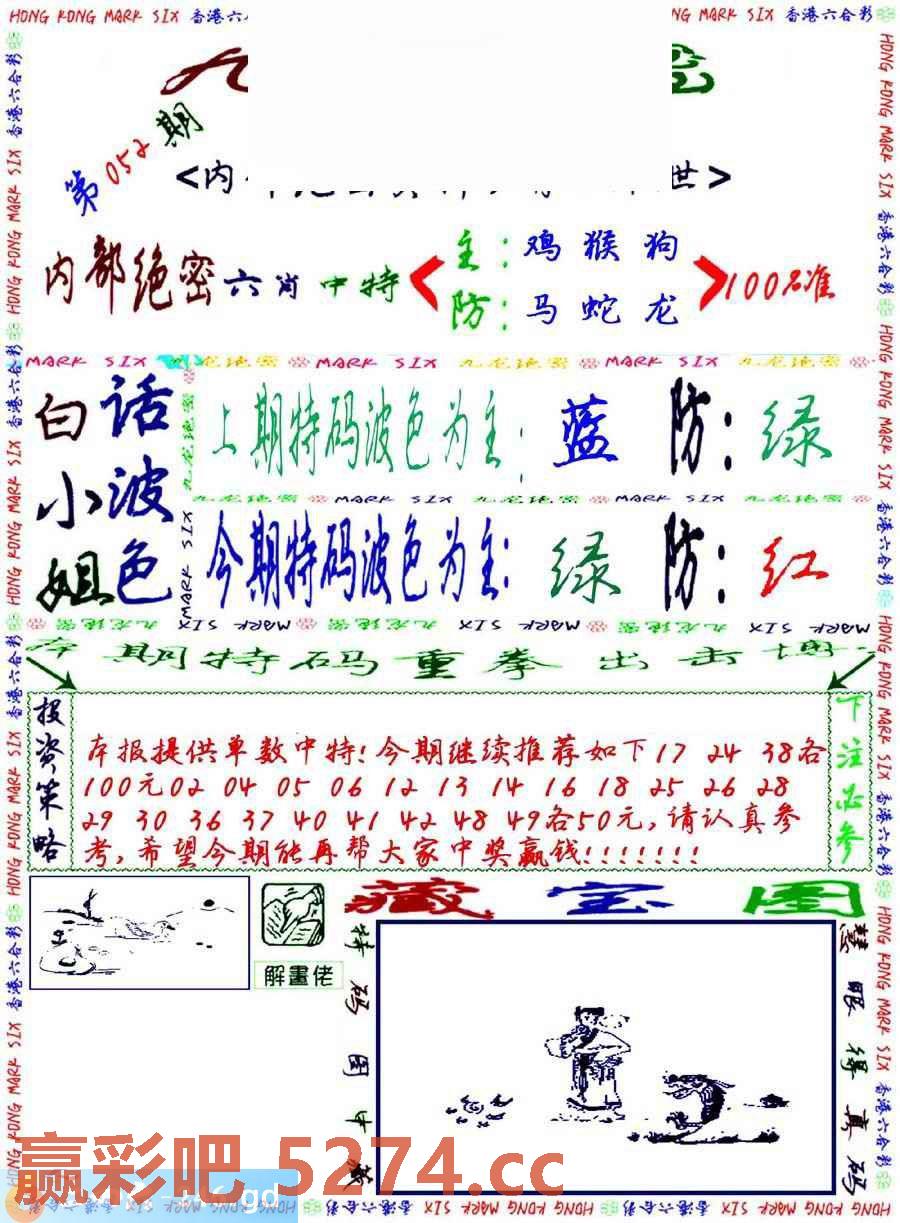 HONG KONG MARK SIX 香港六合彩
第052期
内部绝密六肖中特
主：鸡猴狗
防：马蛇龙
100%准
MARK SIX 九龙绝密 MARK SIX 九龙绝密 MARK SIX 九龙绝密
白话
小波
姐色
上期特码波色为主：蓝 防：绿
今期特码波色为主：绿 防：红
期特码重拳出击
投资策略
本报提供单数中特!今期继续推荐如下17 24 38各
100元02 04 05 06 12 13 14 16 18 25 26 28
29 30 36 37 40 41 42 48 49各50元,请认真参
考,希望今期能再帮大家中奖赢钱!!!!!!!
下注必参
藏宝图
解畫佬
特码图中藏
慧眼得真码
赢彩吧 5274.cc